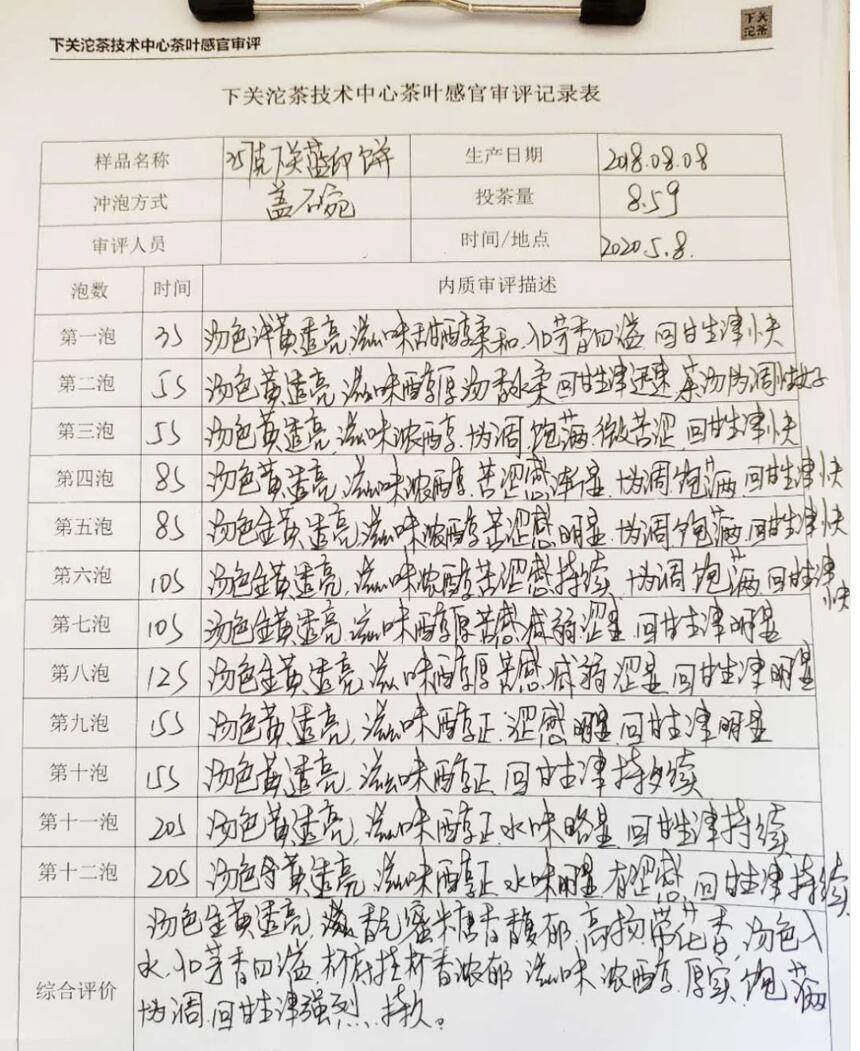 下关沱茶技术中心茶叶感官审评
下关沱茶
下关沱茶技术中心茶叶感官审评记录表
样品名称 357克下关蓝印饼 生产日期 2018.08.08
冲泡方式 盖碗 投茶量 8.5g
审评人员 时间/地点 2020.5.8.
泡数 时间 内质审评描述
第一泡 3S 汤色浅黄透亮,滋味甜醇柔和,如芳香四溢 回甘生津快
第二泡 5S 汤色黄透亮 滋味醇厚 汤香水柔 回甘生津迅速 茶汤协调性好
第三泡 5S 汤色黄透亮,滋味浓醇.协调.饱满.微苦涩.回甘生津快
第四泡 8S 汤色黄透亮,滋味浓醇.苦涩感渐显.协调.饱满.回甘生津快
第五泡 8S 汤色金黄透亮,滋味浓醇苦涩感明显.协调饱满.回甘生津快
第六泡 10S 汤色金黄透亮,滋味浓醇苦涩感持续.协调.饱满.回甘生津快
第七泡 10S 汤色金黄透亮.滋味醇厚苦感减弱涩显.回甘生津明显
第八泡 12S 汤色金黄透亮,滋味醇厚苦感减弱涩显.回甘生津明显
第九泡 15S 汤色黄透亮,滋味醇正.涩感明显.回甘生津明显
第十泡 15S 汤色黄透亮.滋味醇正.回甘生津持续
第十一泡 20S 汤色黄透亮,滋味醇正.水味略显.回甘生津持续
第十二泡 20S 汤色黄透亮.滋味醇正.水味明显.有涩感.回甘生津持续
综合评价
汤色金黄透亮,香气蜜糖香馥郁,高扬带花香,汤色入
水.如芳香四溢.杯底挂杯香浓郁 滋味浓醇.厚实.饱满
协调.回甘生津强烈.持久。